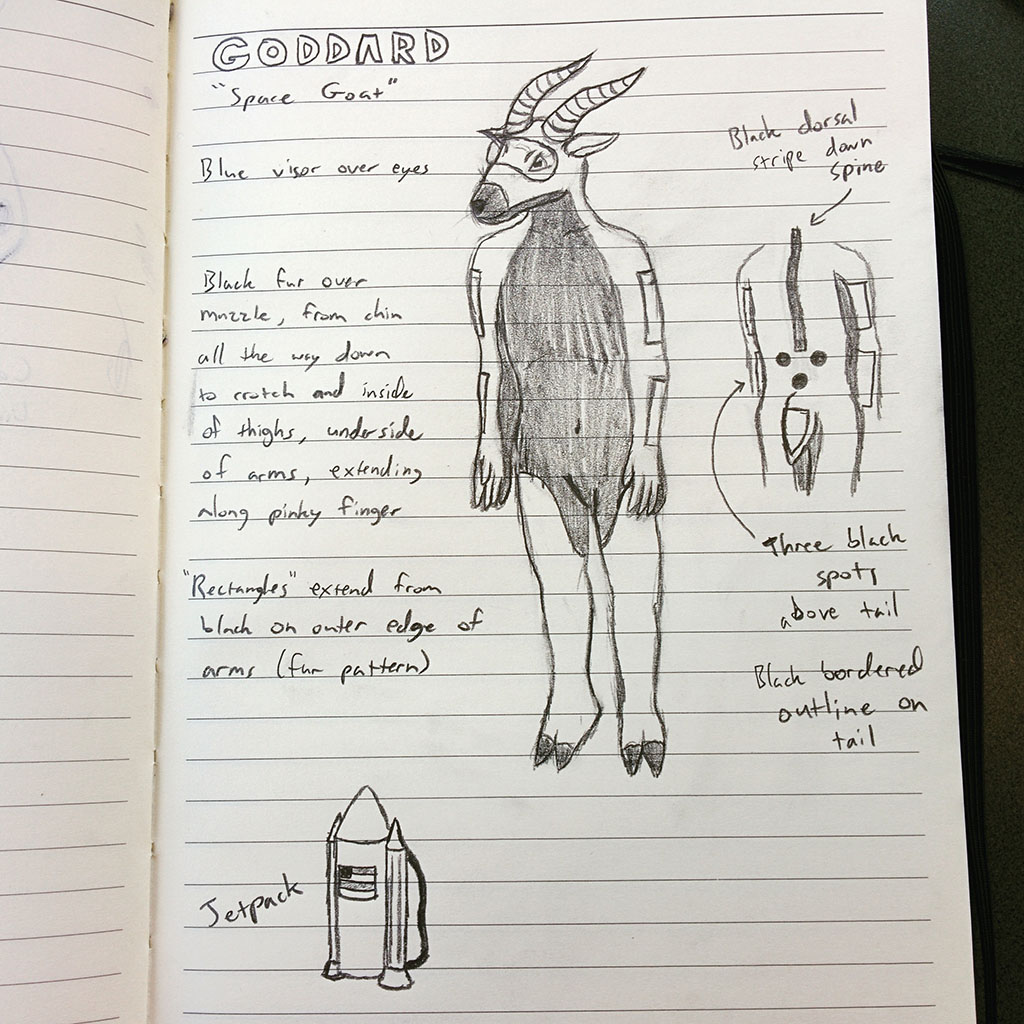 GODDARD
"Space Goat"
Blue visor over eyes
Black fur over
muzzle, from chin
all the way down
to crotch and inside
of thighs, underside
of arms, extending
along pinky finger
"Rectangles" extend from
black on outer edge of
arms (fur pattern)
Black dorsal
stripe down
spine
Three black
spots
above tail
Black bordered
outline on
tail
Jetpack